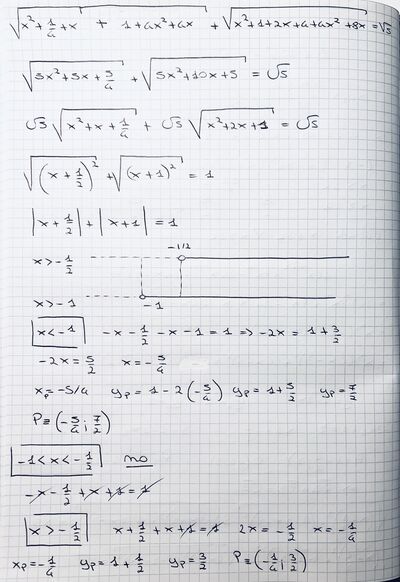 √x²+1/4+x + 1+4x²+4x + √x²+1+2x+4+4x²+8x = √5
√5x²+5x+5/4 + √5x²+10x+5 = √5
√5 √x²+x+1/4 + √5 √x²+2x+1 = √5
√(x+1/2)² + √(x+1)² = 1
|x+1/2| + |x+1| = 1
-1/2
x>-1/2
x>-1 -1
x<-1 -x-1/2-x-1=1 ⇒ -2x = 1+3/2
-2x=5/2 x=-5/4
xp=-5/4 yp=1-2(-5/4) yp=1+5/2 yp=7/2
P≡(-5/4; 7/2)
-1<x<-1/2 no
-x-1/2+x+1=1
x>-1/2 x+1/2+x+1=1 2x=-1/2 x=-1/4
xp=-1/4 yp=1+1/2 yp=3/2 P≡(-1/4; 3/2)